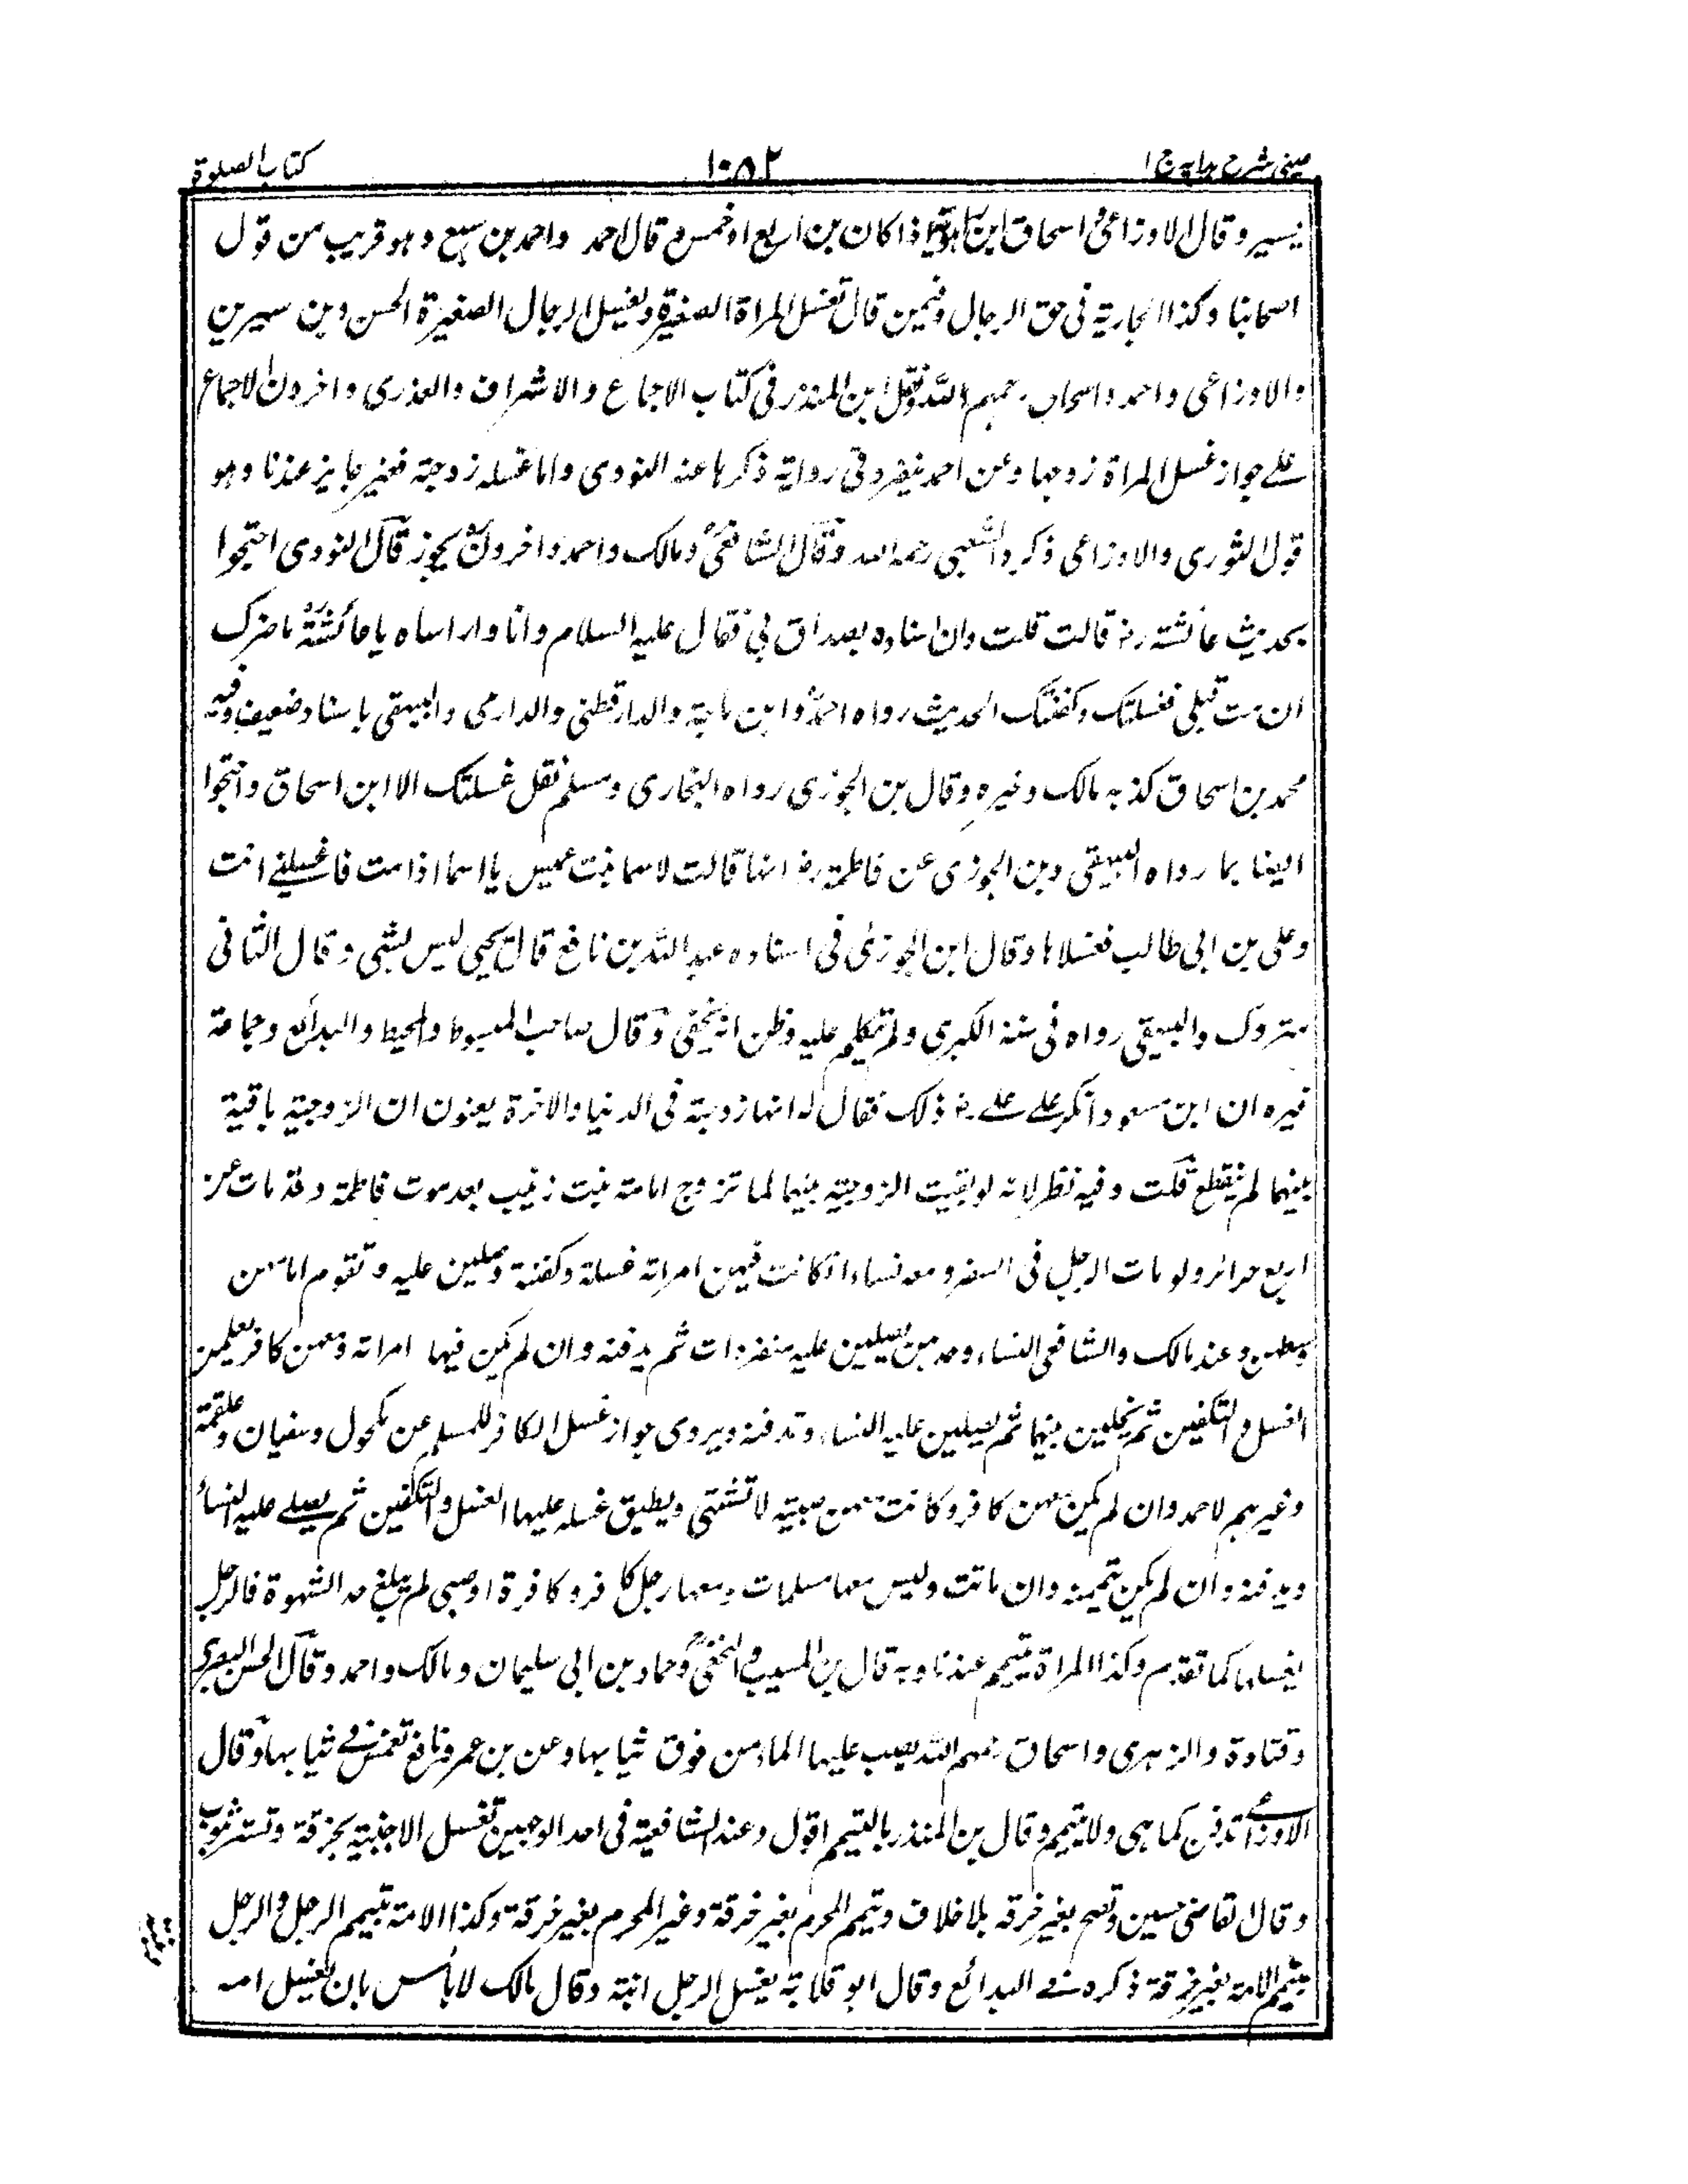 عینی شرح ہدایہ ج ا
١٠٥٢
کتاب الصلوة
یسیر وقال الاوزاعی و اسحاق ابن اذا کان بن اربع او خمس و قال احمد واحمد بن سبع و ہو قریب من قول
اصحابنا وکذا الجاریة فی حق الرجال وفیمن قال تغسل المراة الصغیرة ویغسل الرجال الصغیرة الحسن وبن سیرین
والاوزاعی واحمد واسحاق رحمہم اللہ ونقل ابن المنذر فی کتاب الاجماع والاشراف والعذری واخرون الاجماع
علے جواز غسل المراة زوجہا وعن احمد ینفرد فی روایة ذکرہا عنہ النووی واما غسلہ زوجتہ فغیر جایز عندنا وہو
قول الثوری والاوزاعی ذکرہ والشعبی رحمہ اللہ وقال الشافعی ومالک واحمد واخرون یجوز قال النووی احتجوا
بحدیث عائشة رض قالت قلت وان اسنادہ بصداق بی فقال علیہ السلام وانا واراساہ یا عائشة ماضرک
ان مت قبلی فغسلتک وکفنتک الحدیث رواہ احمد وابن ماجة والدارقطنی والدارمی والبیہقی باسناد ضعیف وفیہ
محمد بن اسحاق کذبہ مالک وغیرہ وقال بن الجوزی رواہ البخاری ومسلم نقل غسلتک الا ابن اسحاق واحتجوا
ایضا بما رواہ البیہقی وبن الجوزی عن فاطمة رض انہا قالت لاسما بنت عمیس یا اسما اذا مت فاغسلنے انت
وعلی بن ابی طالب فغسلاہا وقال ابن الجوزی فی اسنادہ عبد اللہ بن نافع قال یحیی لیس بشی وقال الثانی
متروک والبیہقی رواہ فی سننہ الکبری ولم یتکلم علیہ وظن انہ یخفی وقال صاحب المبسوط والمحیط والبدائع وجماعة
غیرہ ان ابن مسعود انکر علے علے رض ذلک فقال لہ انہا زوجتہ فی الدنیا والاخرة یعنون ان الزوجیة باقیة
بینہما لم ینقطع قلت وفیہ نظر لانہ لو بقیت الزوجیة بینہما لما تزوج امامة بنت زینب بعد موت فاطمة وقد مات عن
اربع حرائر ولو مات الرجل فی السفر ومعہ نساء ان کانت فیہن امراتہ غسلتہ وکفنتہ وصلین علیہ وتقوم امامہن
وسطہن وعند مالک والشافعی النساء وحدہن یصلین علیہ منفردات ثم یدفنہ وان لم یکن فیہا امراتہ ومعہن کافر یعلمن
الغسل والتکفین ثم یخلین بینہما ثم یصلین علیہ النساء وتدفنہ ویروی جواز غسل الکافر للمسلم عن مکحول وسفیان وعلقمة
وغیرہم لاحمد وان لم یکن معہن کافر وکانت معہن صبیة لا تشتہی ویطیق غسلہ علیہا الغسل والتکفین ثم یصلے علیہ النساء
ویدفنہ وان لم یکن یتممنہ وان ماتت ولیس معہا مسلمات ومعہا رجل کافر وکافرة او صبی لم یبلغ حد الشہوة فالرجل
یغسلہا کما تقدم وکذا المراة تیمم عندنا وبہ قال بن المسیب والنخعی وحماد بن ابی سلیمان ومالک واحمد وقال الحسن البصری
وقتادة والزہری واسحاق رحمہم اللہ یصب علیہا الماء من فوق ثیابہا وعن بن عمر ونافع تغمس فے ثیابہا وقال
الاوزاعے تدفن کما ہی ولا تیمم وقال بن المنذر بالتیمم اقول وعند الشافعیة فی احد الوجہین تغسل الاجنبیة بخرقة وتستر بثوب
وقال القاضی حسین وتصح بغیر خرقة بلا خلاف ویتیمم المحرم بغیر خرقة وغیر المحرم بغیر خرقة وکذا الامة تیمم الرجل والرجل
یتیمم الامة بغیر خرقة ذکرہ فے البدائع وقال ابو قلابة یغسل الرجل ابنتہ وقال مالک لا بأس بان یغسل امہ